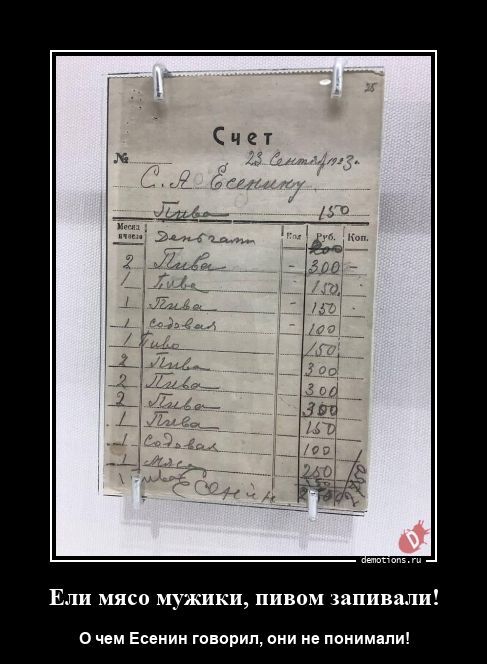 25
Счет
№ 23 Сентяб 1923г.
С. А. Есенину
Пива 150
Месяц и число Кол Руб. Коп.
Деньгами 200
2 Пива - 300 -
1 Пива - 150
1 Пива - 150
1 содовая - 100
1 Пиво 150
2 Пива 300
2 Пива 300
2 Пива 300
1 Пива 150
1 Содовая 100
1 Мясо 250
1 пиво 150
Есенин
demotions.ru
Ели мясо мужики, пивом запивали!
О чем Есенин говорил, они не понимали!